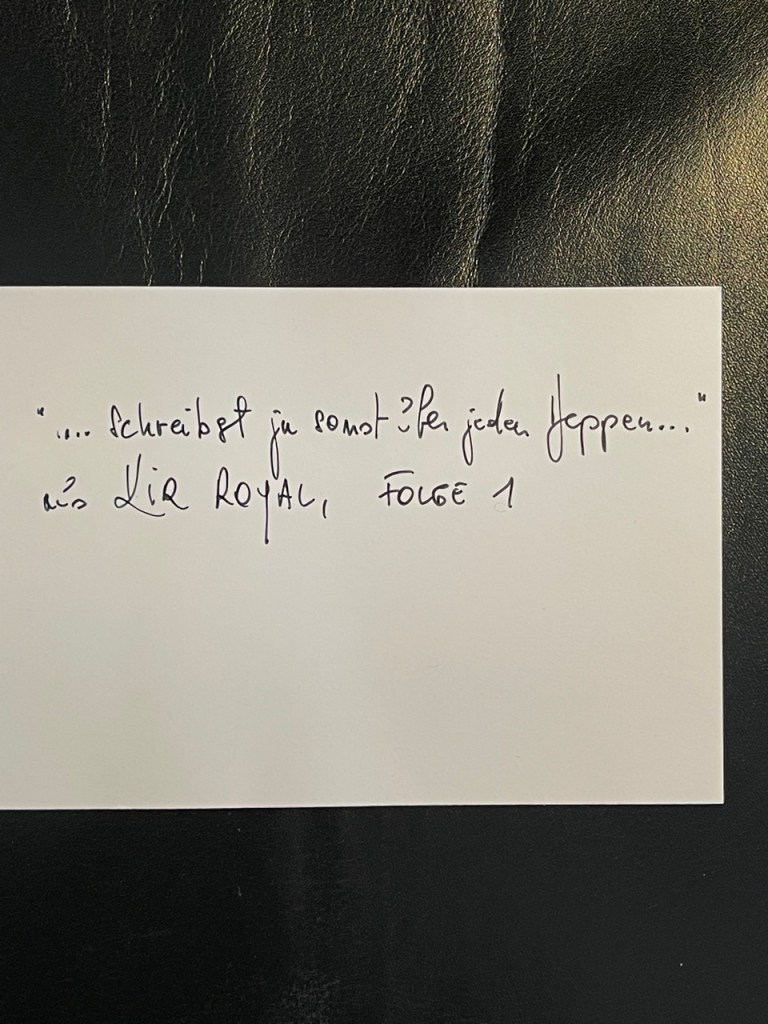 ".... schreibst ja sonst über jeden Heppen..."
aus KIR ROYAL, FOLGE 1